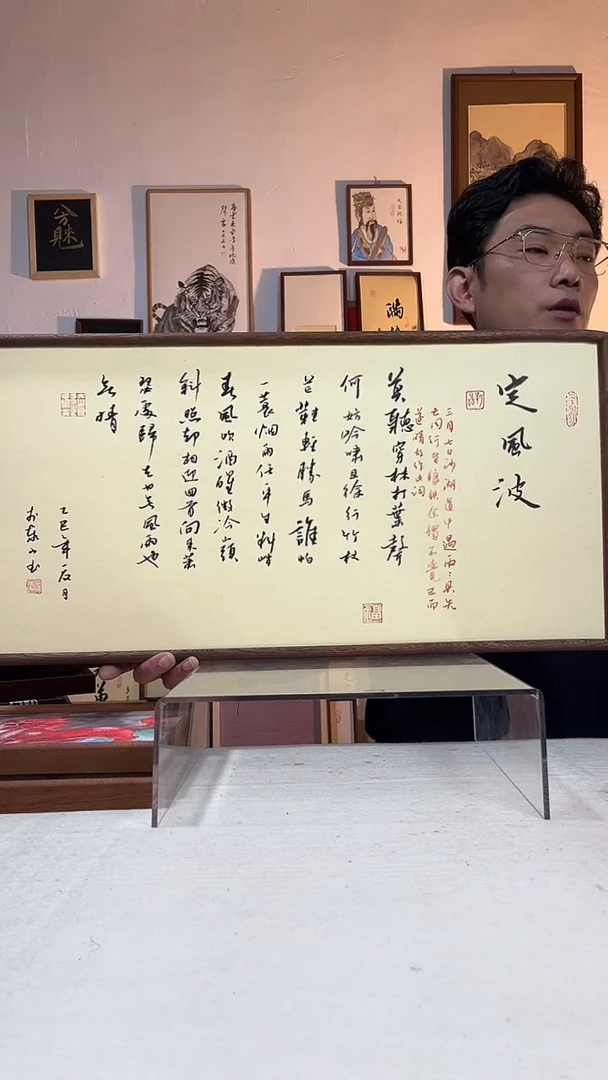 定風波
三月七日沙湖道中遇雨〻具先
去同行皆狼狽余獨不覺已而
遂晴故作此詞
莫聽穿林打葉聲
何妨吟嘯且徐行竹杖
芒鞋輕勝馬誰怕
一蓑烟雨任平生料峭
春風吹酒醒微冷山頭
斜照却相迎回首向來蕭
瑟處歸去也無風雨也
無晴
乙巳年
福